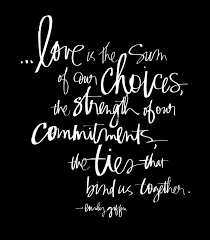 ...love is the sum
of our choices,
the strength of our
commitments,
the ties that
bind us together.
— Emily Giffin